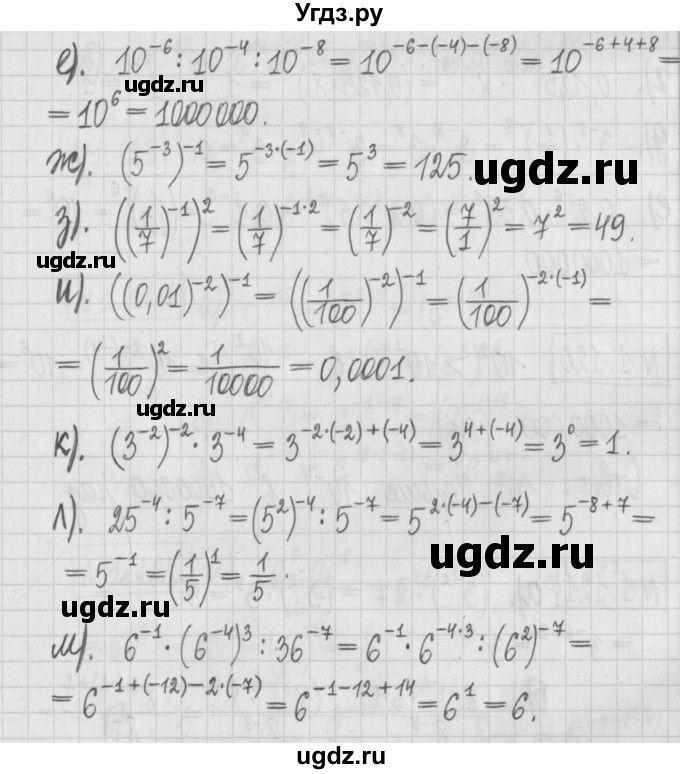 Угдз.ру
е). 10⁻⁶ : 10⁻⁴ : 10⁻⁸ = 10⁻⁶⁻⁽⁻⁴⁾⁻⁽⁻⁸⁾ = 10⁻⁶⁺⁴⁺⁸ =
ugdz.ru
= 10⁶ = 1000 000.
ж). (5⁻³)⁻¹ = 5^(-3·(-1)) = 5³ = 125.
ugdz.ru
з). ((1/7)⁻¹)² = (1/7)^(-1·2) = (1/7)⁻² = (7/1)² = 7² = 49.
ugdz.ru
и). ((0,01)⁻²)⁻¹ = ((1/100)⁻²)⁻¹ = (1/100)^(-2·(-1)) =
= (1/100)² = 1/10000 = 0,0001.
ugdz.ru
к). (3⁻²)⁻² · 3⁻⁴ = 3^(-2·(-2)+(-4)) = 3^(4+(-4)) = 3⁰ = 1.
л). 25⁻⁴ : 5⁻⁷ = (5²)⁻⁴ : 5⁻⁷ = 5^(2·(-4)-(-7)) = 5⁻⁸⁺⁷ =
ugdz.ru
= 5⁻¹ = (1/5)¹ = 1/5.
ugdz.ru
м). 6⁻¹ · (6⁻⁴)³ : 36⁻⁷ = 6⁻¹ · 6^(-4·3) : (6²)⁻⁷ =
= 6^(-1+(-12)-2·(-7)) = 6⁻¹⁻¹²⁺¹⁴ = 6¹ = 6.
ugdz.ru